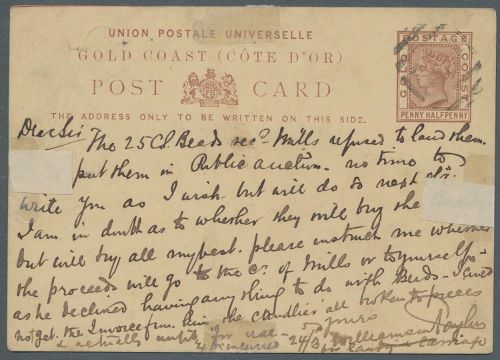 UNION POSTALE UNIVERSELLE
GOLD COAST (CÔTE D'OR)
POST CARD
THE ADDRESS ONLY TO BE WRITTEN ON THIS SIDE.
POSTAGE
GOLD COAST
PENNY HALFPENNY
Dear Sir The 25 Cs Beads recd Mills refused to land them.
put them in Public auction. no time to
write you as I wish but will do so next
I am in doubt as to whether they will buy the
but will buy all my best. please instruct me whether
the proceeds will go to the c. of Mills or to yourself
as he declined having anything to do with Beads - I can
not get the Invoice from him the Chandlier all broken to pieces
& actually for use
yours
24/3
Williamson